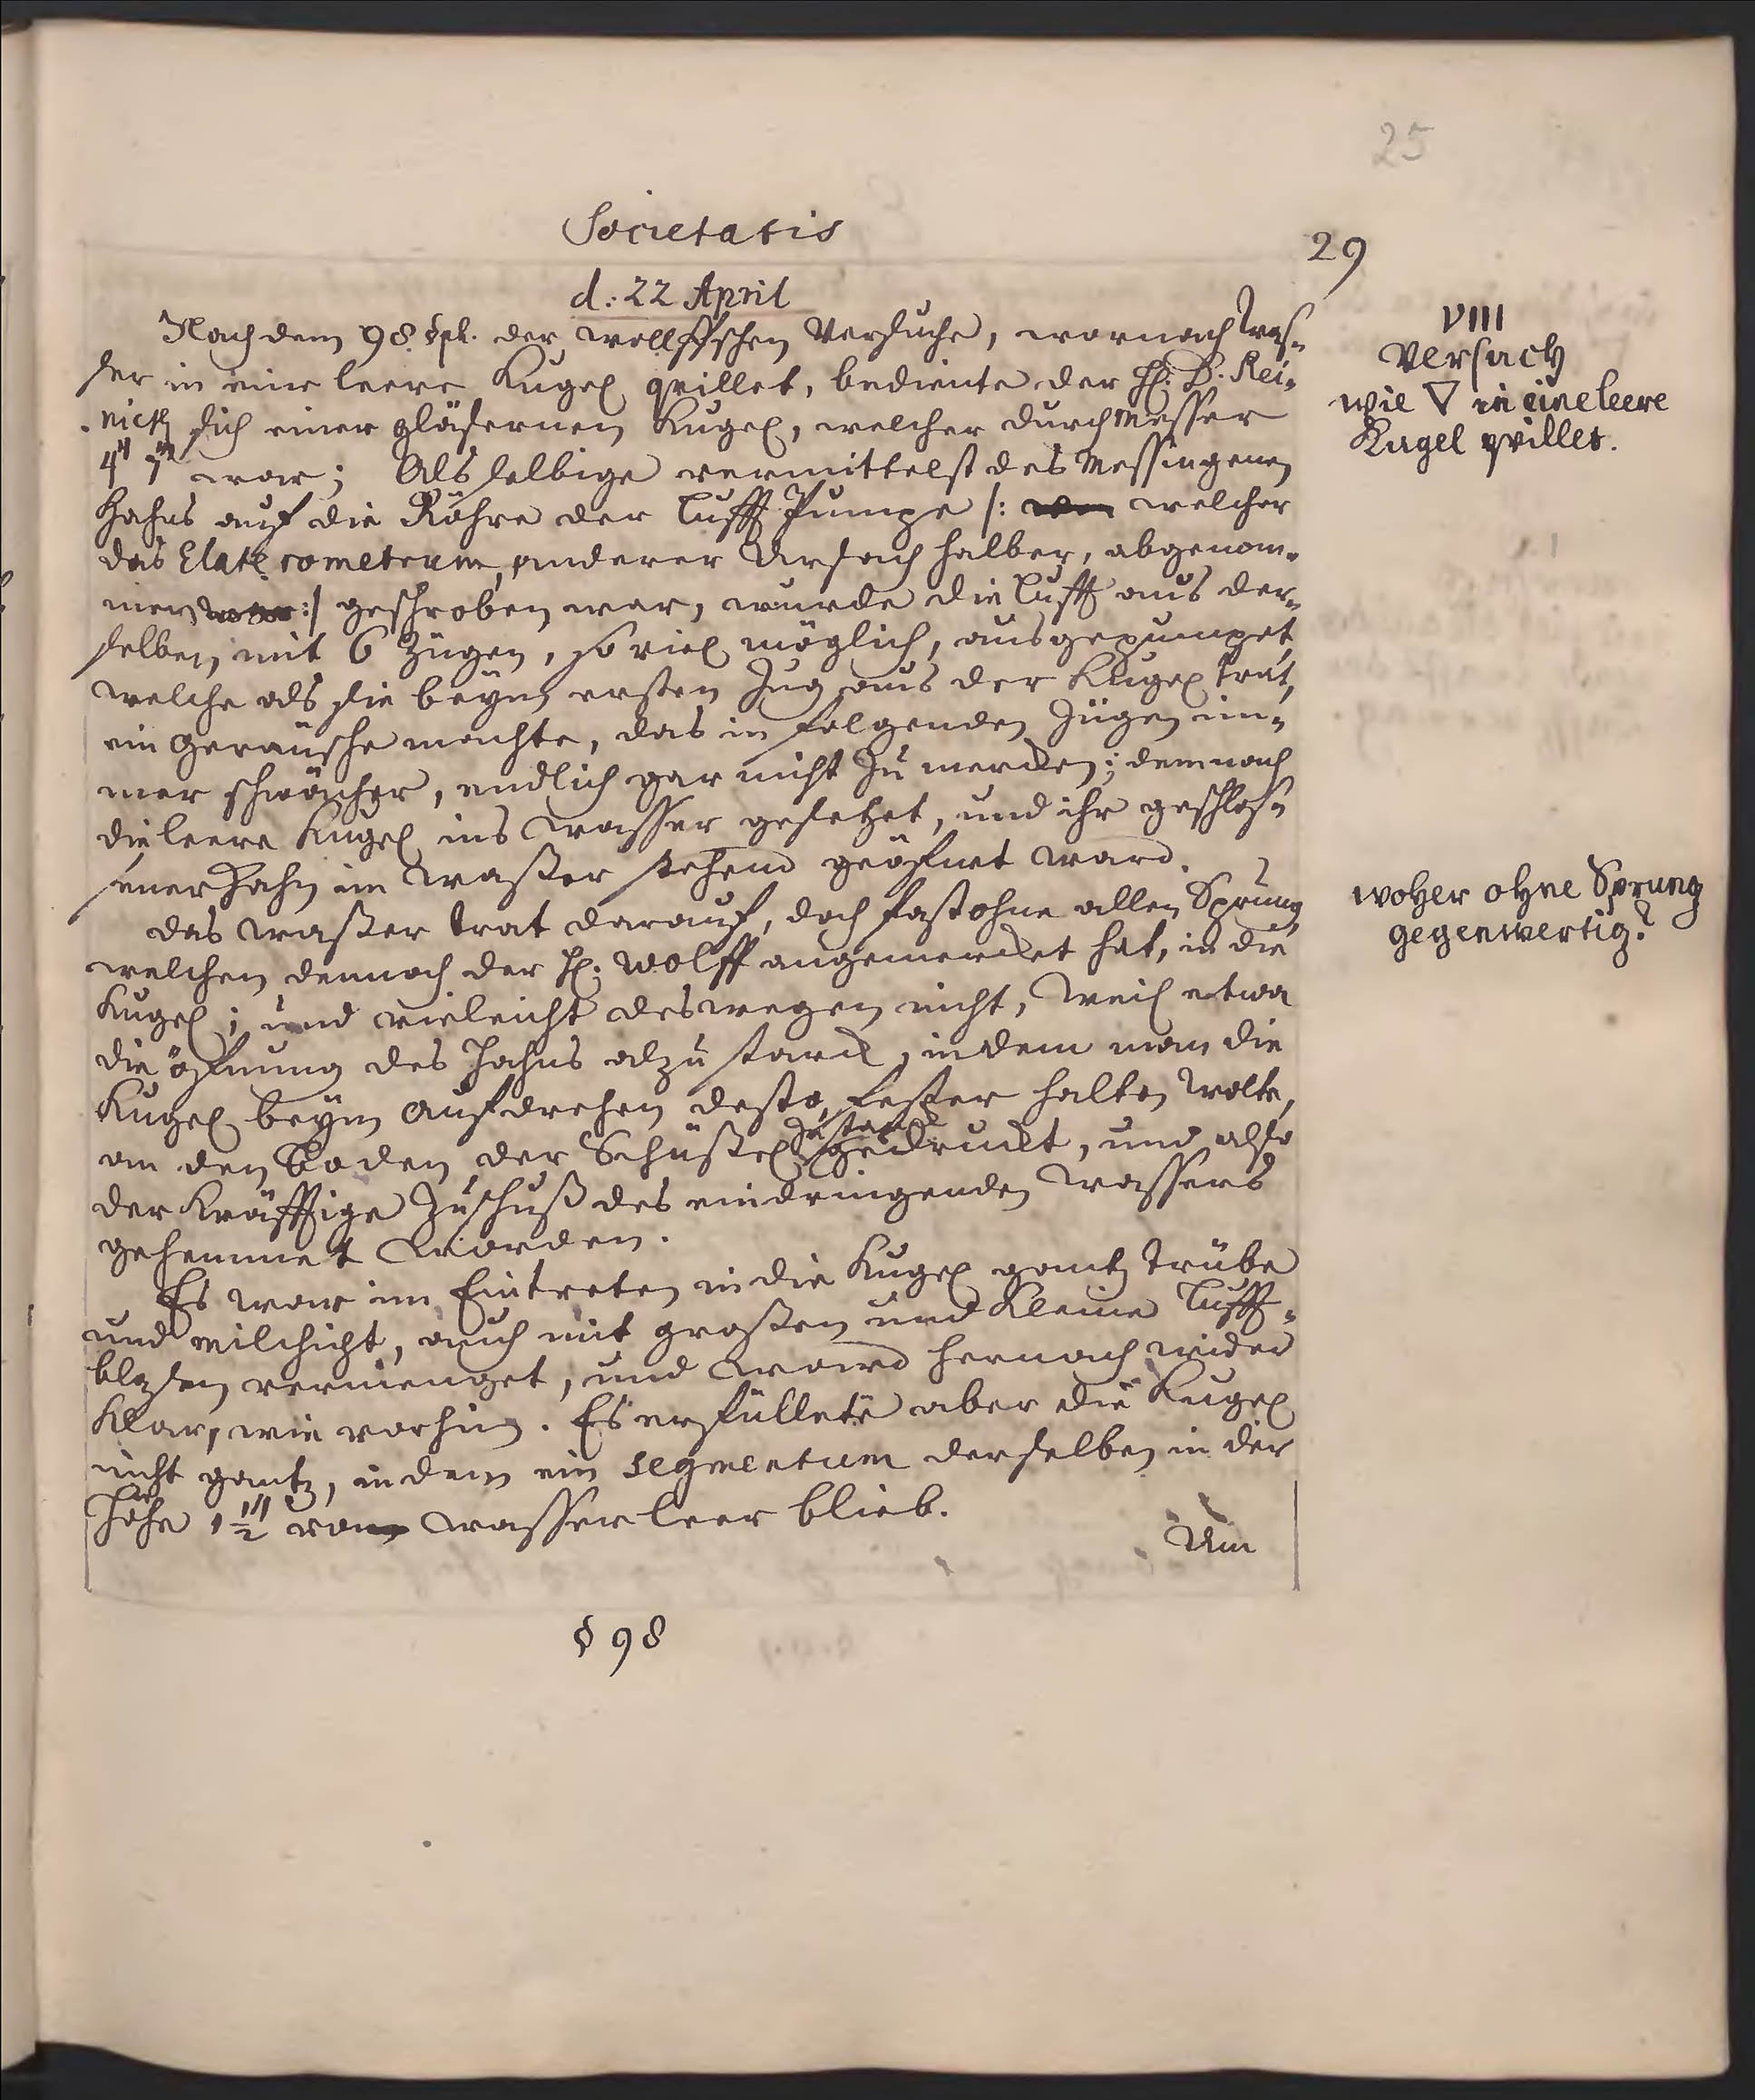 25
Societatis
29
d: 22 April
Nach dem 98. §ph. der Wolffschen Versuche, wornach Was-
ser in eine leere Kugel qvillet, bediente der H. D. Rei-
nick sich einer gläsernen Kugel, welcher durch Messer
4" 7''' war; Als selbige vermittelst des Messingenen
Hahns auf die Röhre der Lufft Pumpe /: von welcher
das Elaterometrum, anderer Ursach halber, abgenom-
men :/ geschroben war, wurde die Lufft aus der-
selben, mit 6 Zügen, so viel möglich, ausgepumpet,
welche als sie beym ersten Zug aus der Kugel trat,
ein Geräusche machte, das in folgenden Zügen im-
mer schwächer, endlich gar nicht zu mercken; demnach
die leere Kugel ins Wasser gesetzet, und ihr geschloß-
sener Hahn im Waßer stehend geöfnet ward.
Das Waßer trat darauf, doch fast ohne allen Sprung,
welchen dennoch der H. Wolff angemercket hat, in die
Kugel; und vieleicht deswegen nicht, weil etwa
die öfnung des Hahns alzu starck, indem man die
Kugel beym Aufdrehen desto fester halten wolte,
an den Boden der Schüßel zu starck gedruckt, und also
der Kräfftige Zuschuß des eindringenden Wassers
gehemmet worden.
Es war im Eintreten in die Kugel gantz trübe
und milchicht, auch mit großen und kleine Lufft-
blasen vermenget, und ward hernach wieder
klar, wie vorhin. Es erfüllete aber die Kugel
nicht gantz, indem ein segmentum derselben in der
Höhe 1½''' von Wasser leer blieb.
Um
§ 98
VIII
Versuch
wie ▽ in eine leere
Kugel qvillet.
woher ohne Sprung
gegenwertig?